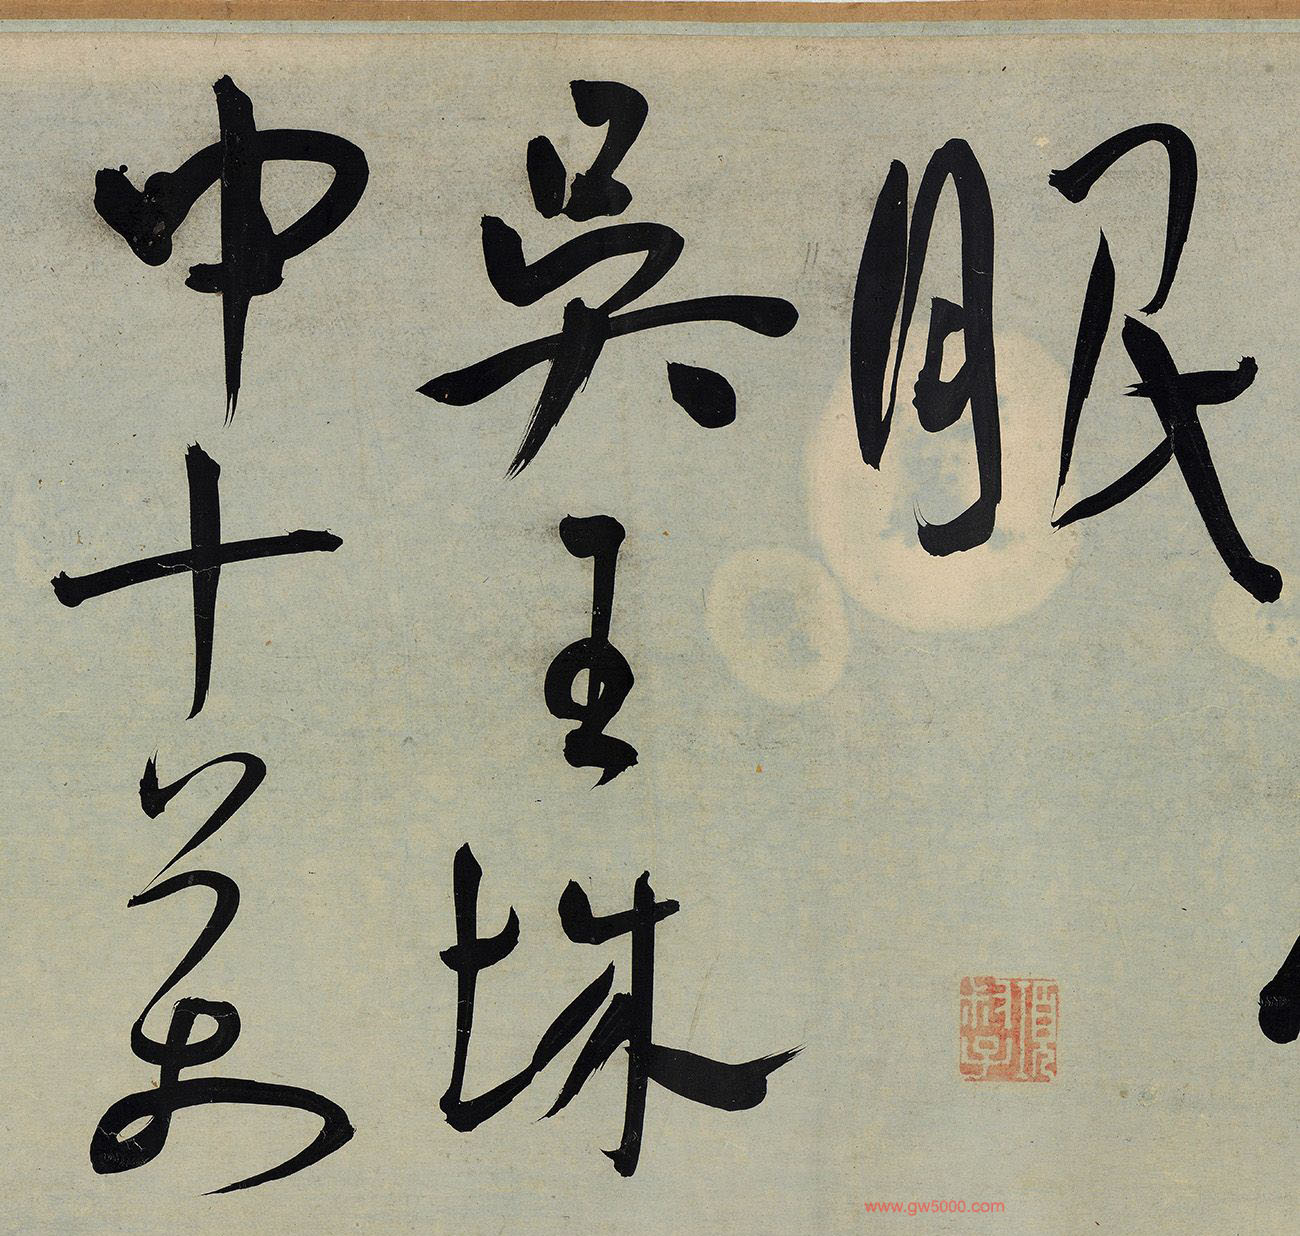 眼
吳王珠
中十萬
www.gw5000.com